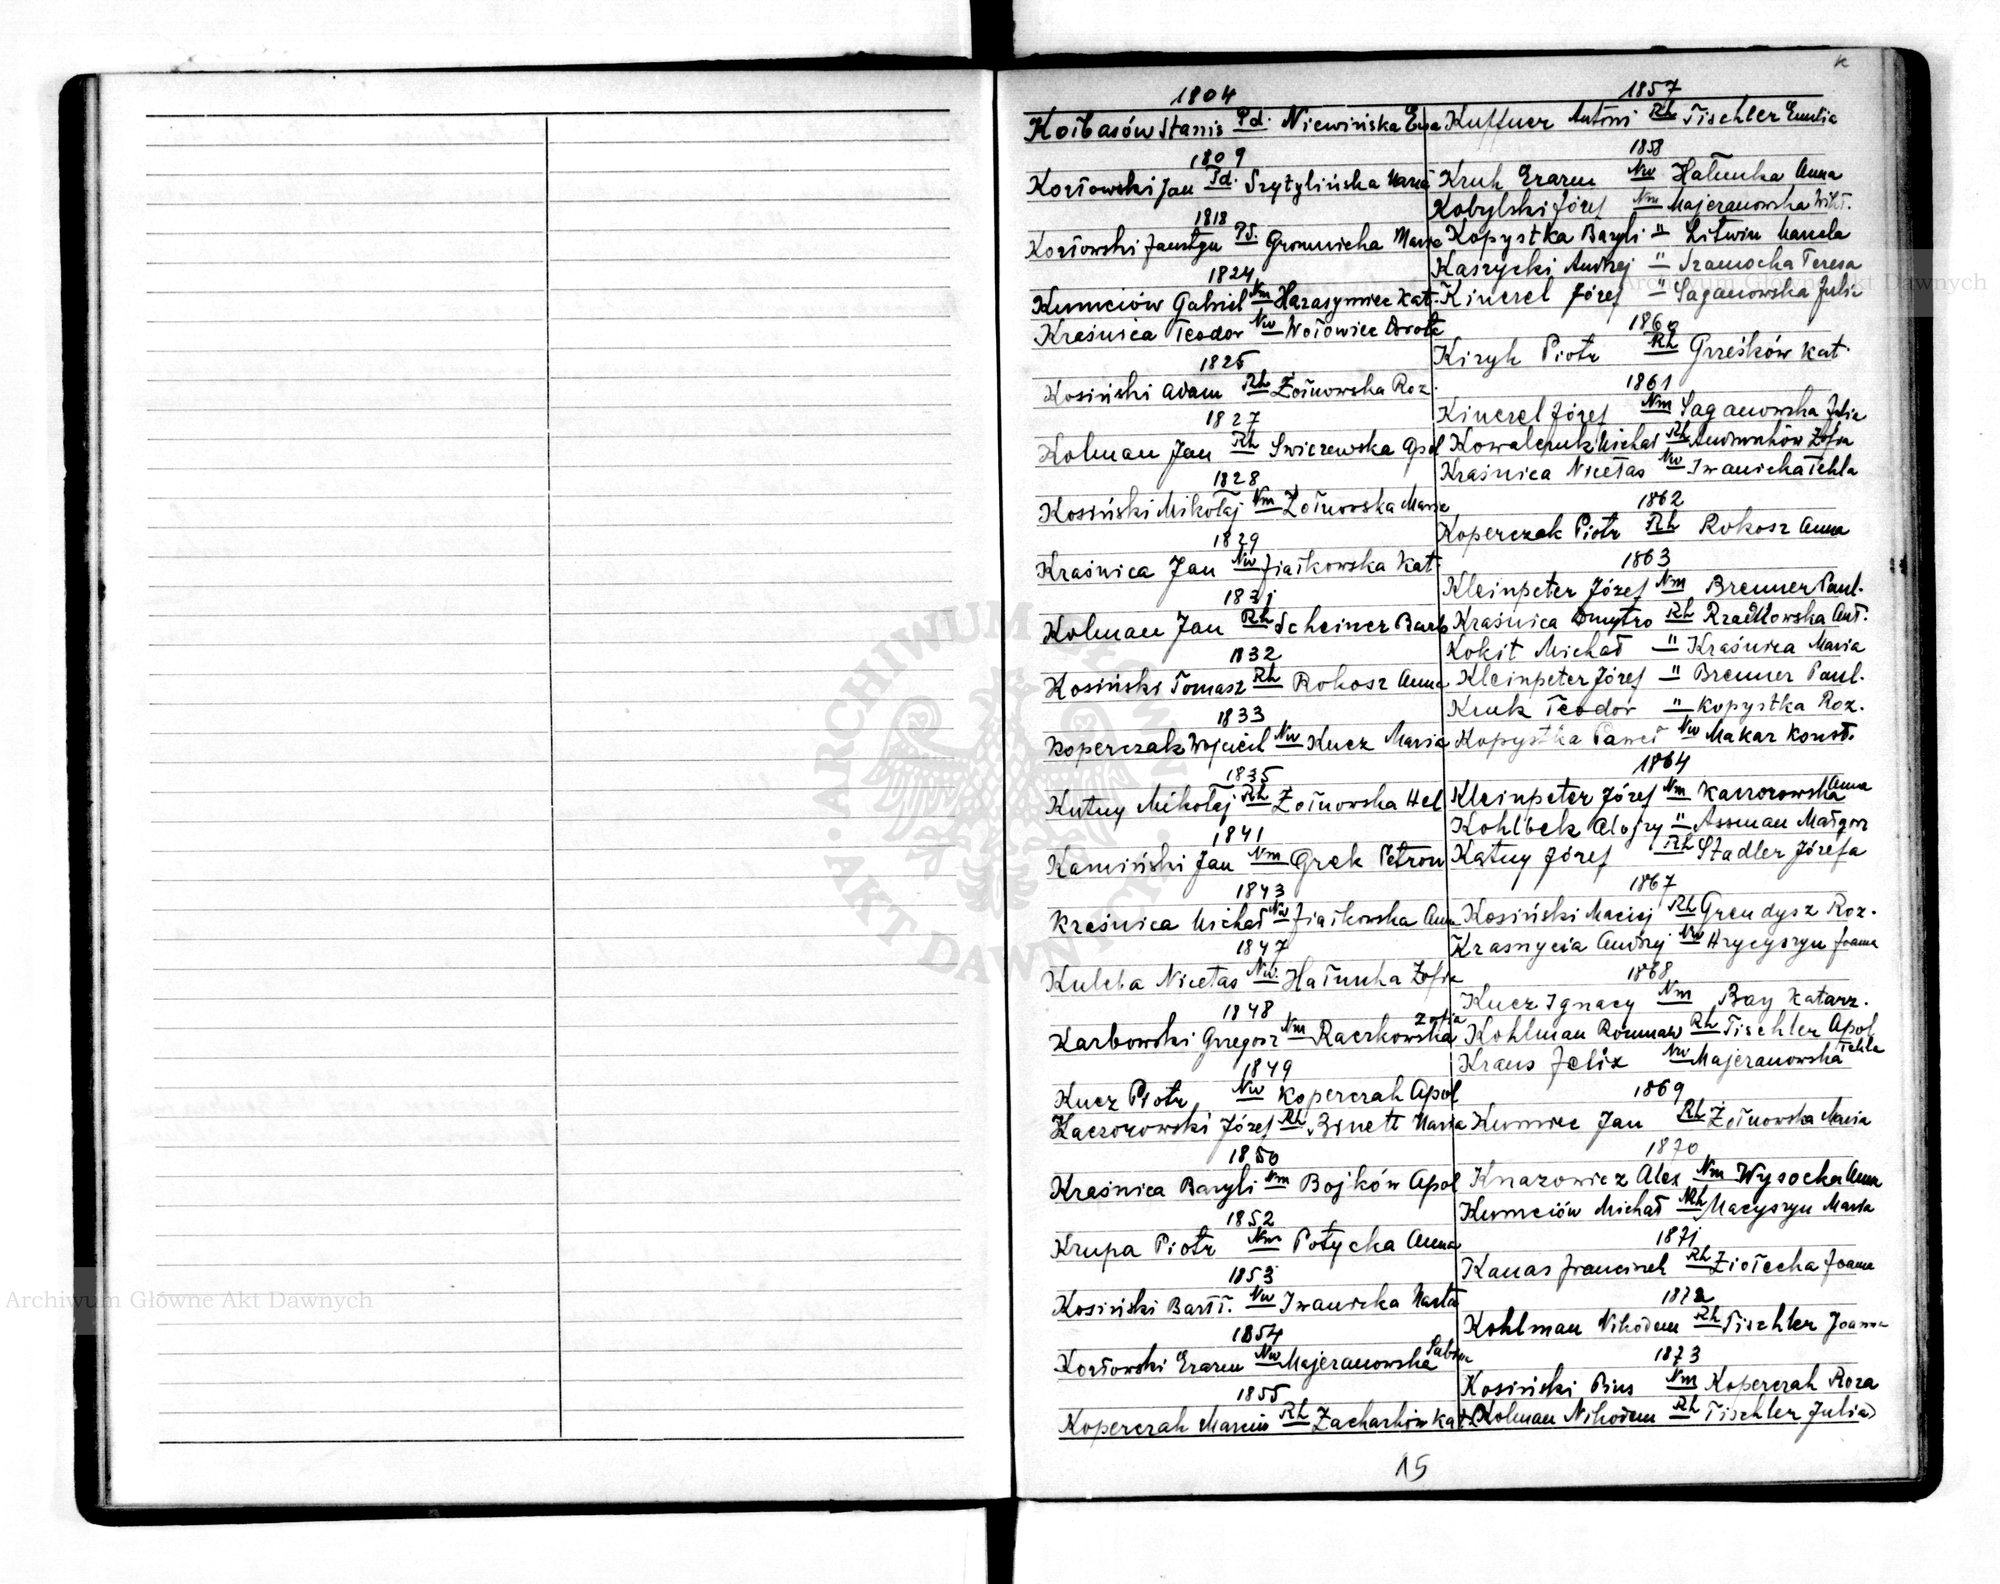 K
1804
Koibasów Stanis Pd. Niewińska Ewa
1809
Kozłowski Jan Pd. Szytylińska Maria
1818
Kozłowski Pd. Gromnicka Maria
1824
Kumciów Gabriel Nm Harasymiec Kat.
Kraśnica Teodor Nw Wołowiec Dorota
1825
Kosiński Adam Rh Żołnowska Roz.
1827
Kolman Jan Rh Swiczewska Apol
1828
Kosiński Mikołaj Nm Żołnowska Maria
1829
Kraśnica Jan Nw Ziałkowska Kat.
1831
Kolman Jan Rh Scheiner Barb
1832
Kosiński Tomasz Rh Rokosz Anna
1833
Koperczak Wojciech Nw Kucz Maria
1835
Kutny Mikołaj Rh Żołnowska Hel
1841
Kamiński Jan Nm Grek Petron
1843
Kraśnica Michał Nw Ziałkowska Anna
1847
Kuleba Nicetas Nw. Hałunka Zofia
1848
Karbowski Grzegorz Nm Raczkowska Zofia
1849
Kucz Piotr Nw Koperczak Apol
Kaczorowski Józef Rh Binett Maria
1850
Kraśnica Bazyli Nm Bojków Apol
1852
Krupa Piotr Nm Potycka Anna
1853
Kosiński Bartł. Nw Iwanicka Marta
1854
Kozłowski Erazm Nw Majeranowska Sabina
1855
Koperczak Marcin Rh Zacharków Kat
1857
Kuffner Antoni Rh Tischler Emilia
1858
Kruk Erazm Nw Hałunka Anna
Kobylski Józef Nm Majeranowska Wikt.
Kopystka Bazyli " Litwin Manela
Kaszycki Andrzej " Szamocha Teresa
Kinczel Józef " Saganowska Julia
1860
Kizyk Piotr Rh Grześków Kat.
1861
Kinczel Józef Nm Saganowska Julia
Kowalczuk Michał Rh Andruchów Zofia
Kraśnica Nicetas Nw Iwanicka Tekla
1862
Koperczak Piotr Rh Rokosz Anna
1863
Kleinpeter Józef Nm Brenner Paul.
Kraśnica Dmytro Rh Rzadkowska Ant.
Kokit Michał " Kraśnica Maria
Kleinpeter Józef " Brenner Paul.
Kruk Teodor " Kopystka Roz.
Kopystka Paweł Nw Makar Konst.
1864
Kleinpeter Józef Nm Kaczorowska Anna
Kohlbek Alojzy " Assman Małgorz
Katny Józef Rh Stadler Józefa
1867
Kosiński Maciej Rh Grendysz Roz.
Krasnycia Andrzej Nw Hrycyszyn Joanna
1868
Kucz Ignacy Nm Bay Katarz.
Kohlman Romuald Rh Tischler Apol
Kraus Felix Nw Majeranowska Tekla
1869
Kumiec Jan Rh Żołnowska Maria
1870
Knazowicz Alex Nm Wysocka Anna
Kumciów Michał Rh Macyszyn Maria
1871
Kanas Franciszek Rh Ziołecka Joanna
1872
Kohlman Nikodem Rh Tischler Joanna
1873
Kosiński Pius Nm Koperczak Roza
(Kolman Nikodem Rh Tischler Julia)
15
Archiwum Główne Akt Dawnych
Archiwum Główne Akt Dawnych
ARCHIWUM GŁÓWNE AKT DAWNYCH